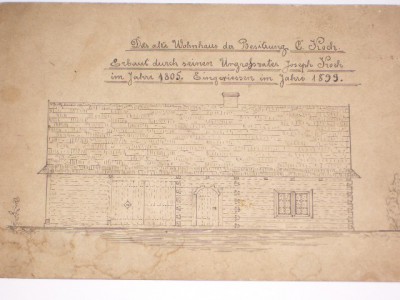 Das alte Wohnhaus der Besitzung C. Koch.
Erbaut durch seinen Urgroßvater Joseph Koch
im Jahre 1805. Eingerissen im Jahre 1899.